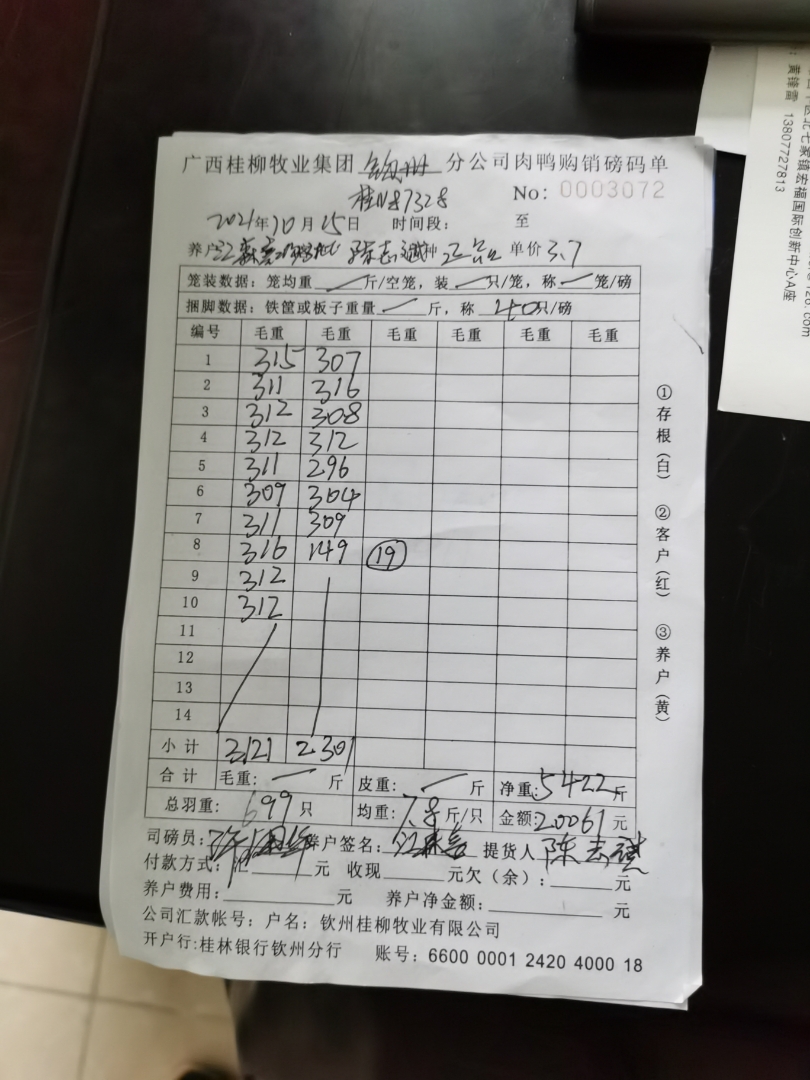 广西桂柳牧业集团 钦州 分公司肉鸭购销磅码单
桂N87328
No: 0003072
2021年10月15日 时间段: 至
养户 陈志 种 正品 单价 3.7
笼装数据: 笼均重 斤/空笼, 装 只/笼, 称 笼/磅
捆脚数据: 铁筐或板子重量 斤, 称 40只/磅
编号 毛重 毛重 毛重 毛重 毛重 毛重
1 315 307
2 311 316
3 312 308
4 312 312
5 311 296
6 309 304
7 311 309
8 316 149 19
9 312
10 312
11
12
13
14
小计 3121 2301
合计 毛重: 斤 皮重: 斤 净重: 5422斤
总羽重: 699只 均重: 7.8斤/只 金额: 20061元
司磅员: 养户签名: 提货人 陈志
付款方式: 汇 元 收现 元欠(余): 元
养户费用: 元 养户净金额: 元
公司汇款帐号: 户名: 钦州桂柳牧业有限公司
开户行:桂林银行钦州分行 账号: 6600 0001 2420 4000 18
①存根(白) ②客户(红) ③养户(黄)
七家镇宏福国际创新中心A座
黄锋雷 13807727813